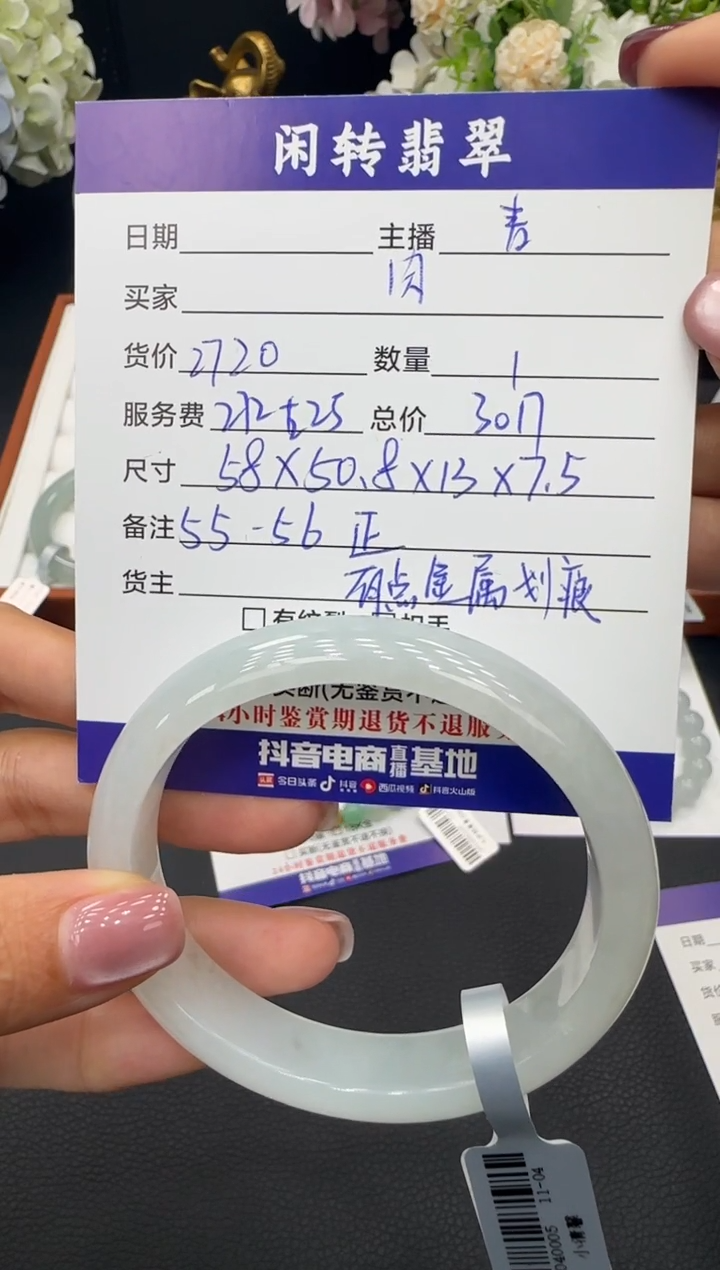 闲转翡翠
日期 主播 青
买家 闵
货价 2720 数量 1
服务费 272+25 总价 3017
尺寸 58×50.8×13×7.5
备注 55-56 正
货主 有点金属划痕
小时鉴赏期退货不退服
抖音电商直播基地
头条 今日头条 抖音 西瓜视频 抖音火山版
日期
买家
货价
11-04
040005